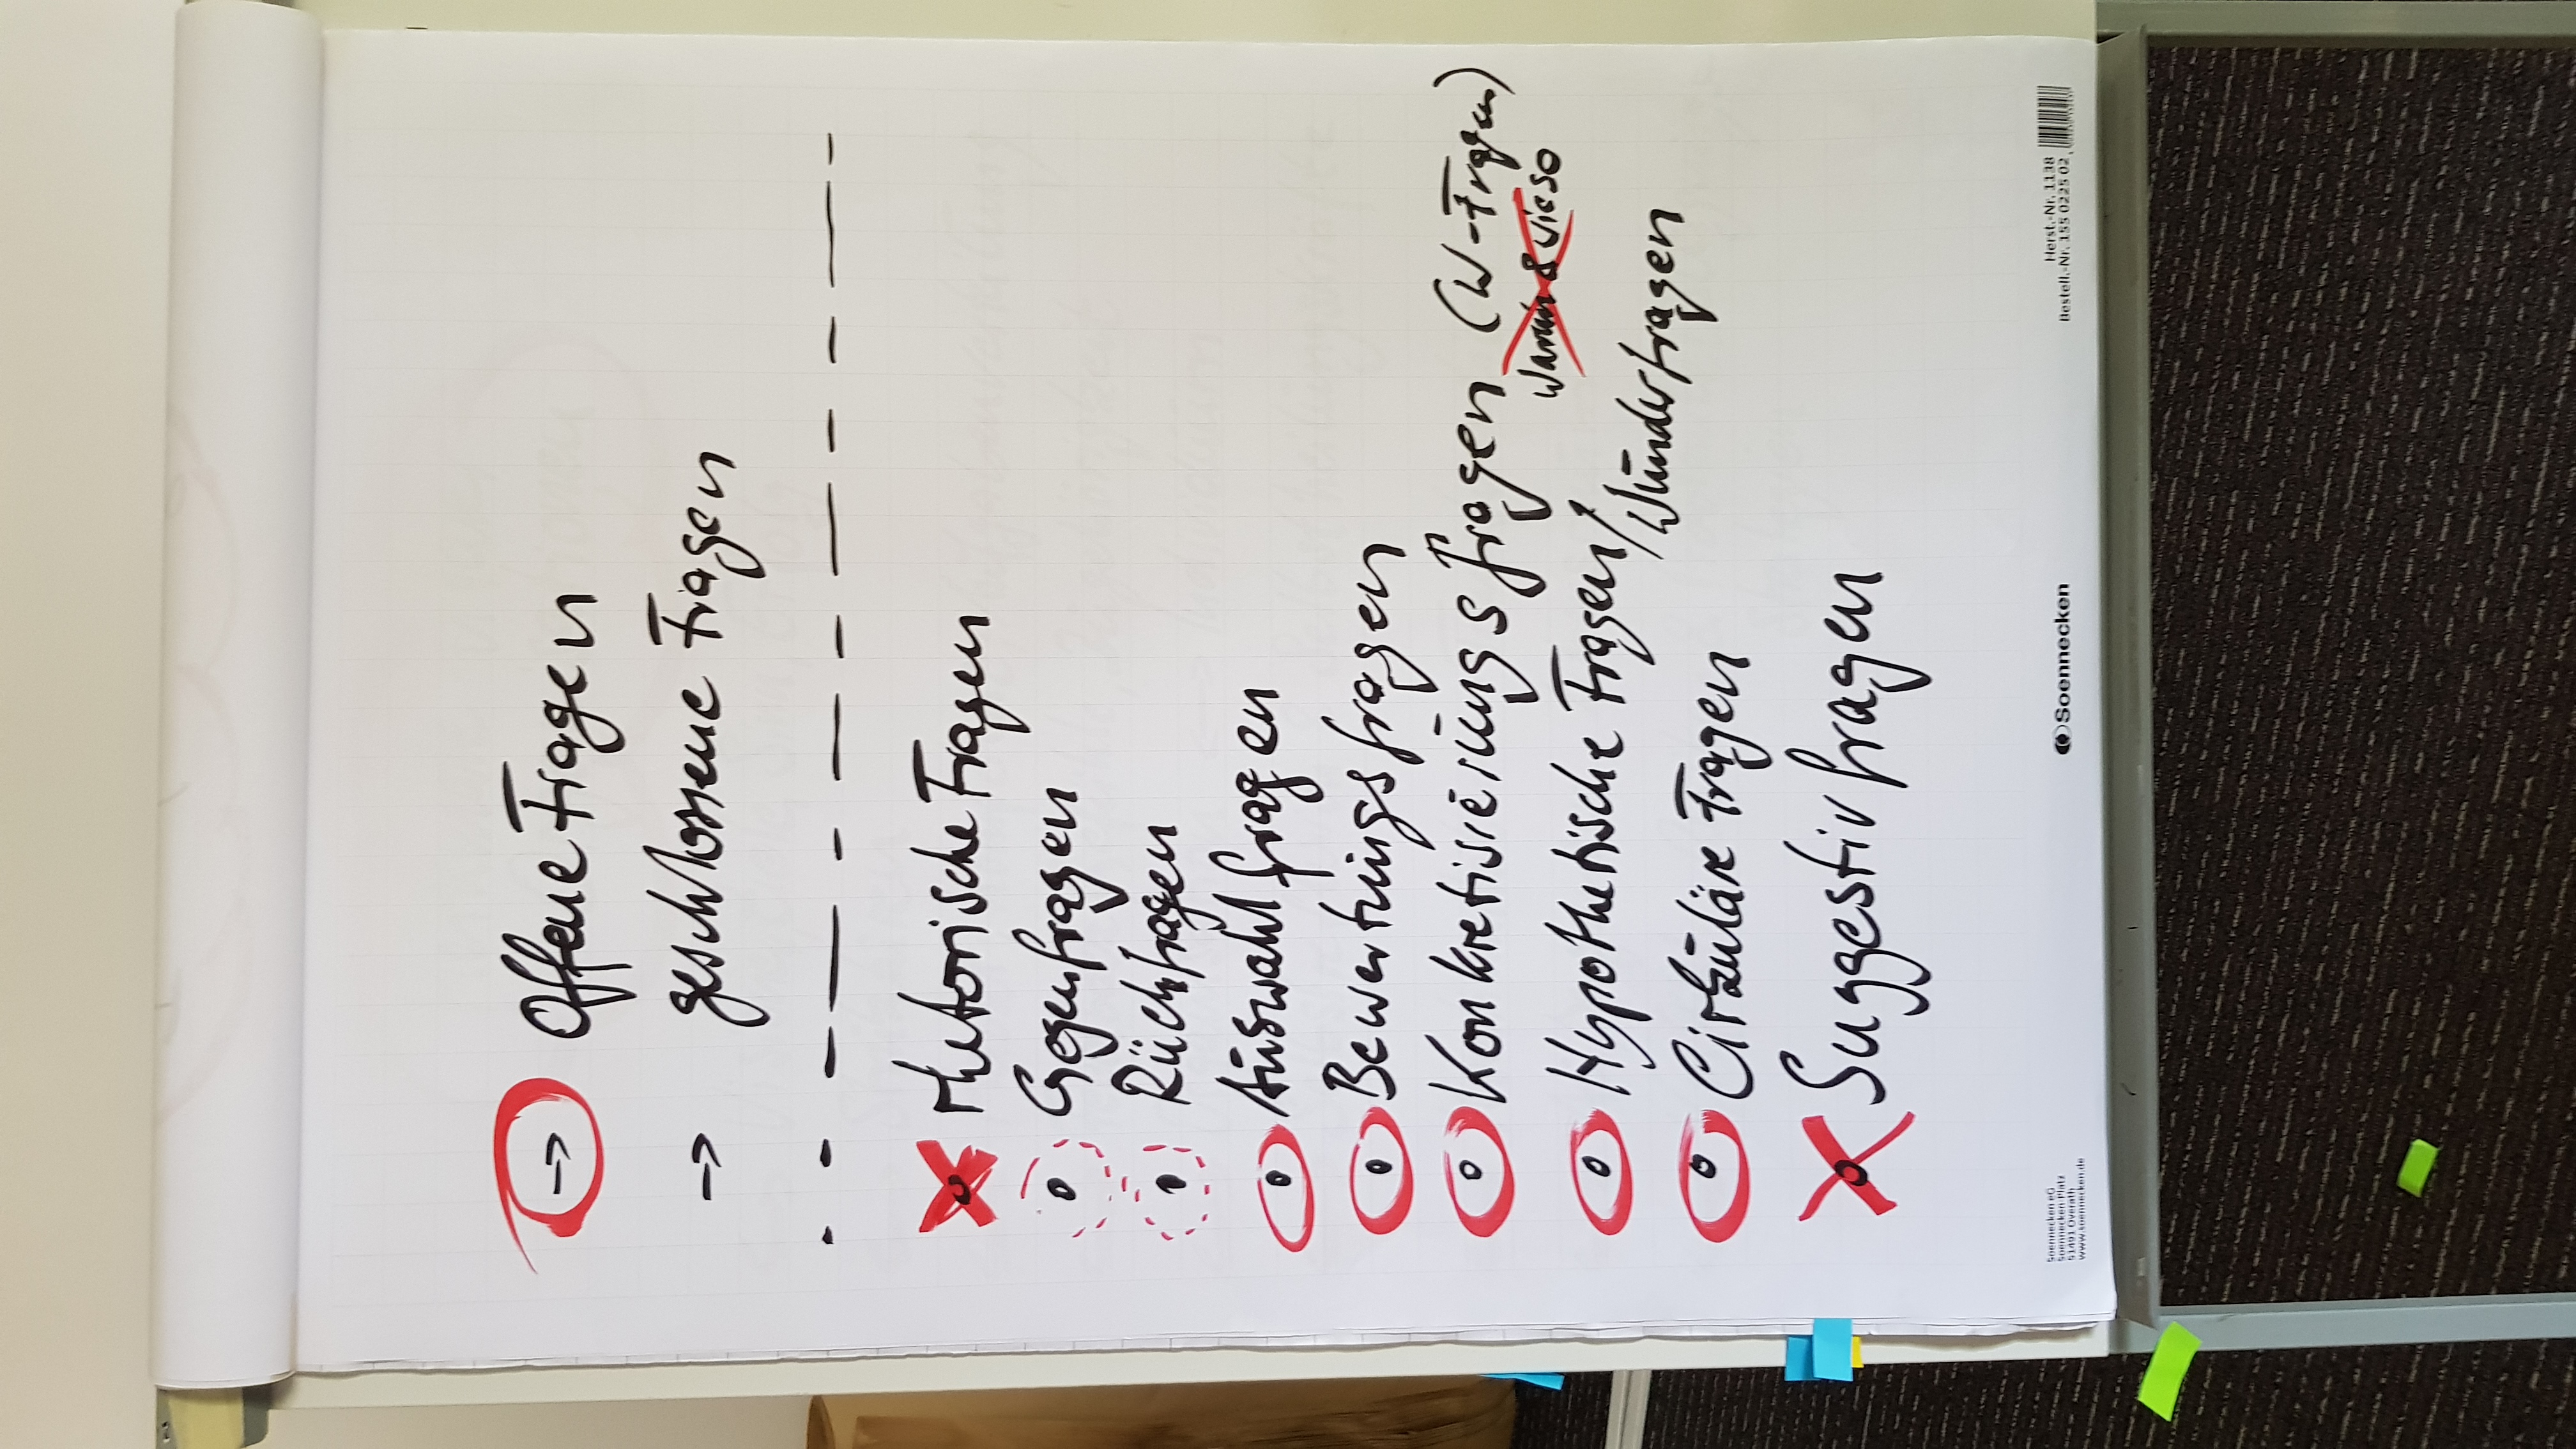 → Offene Fragen
→ geschlossene Fragen
rhetorische Fragen
Gegenfragen
Rückfragen
Auswahlfragen
Bewertungsfragen
Konkretisierungsfragen (W-Fragen)
Warum & Wieso
Hypothetische Fragen /
Wunderfragen
Cirkuläre Fragen
Suggestivfragen
Soennecken eG
Soennecken-Platz
51491 Overath
www.soennecken.de
Soennecken
Herst.-Nr. 1138
Bestell.-Nr. 155 0225 02